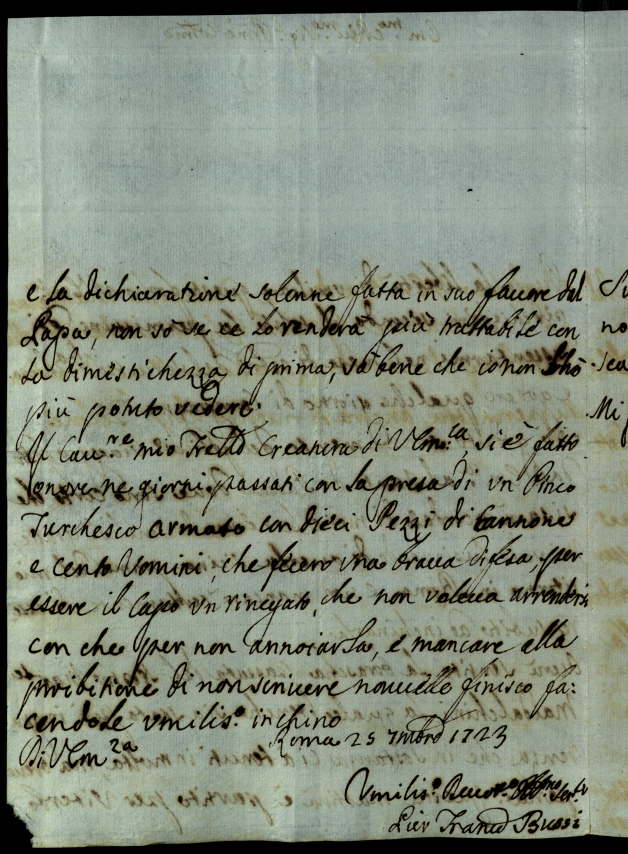 e la dichiaratione solenne fatta in suo fauore dal
Papa, non sò se ce lo renderà più trattabile con
la dimestichezza di prima, sà bene che io non l'hò
più potuto vedere.
Il Cau.re mio Fratello Creatura di V. Em.za, si è fatto
onore ne giorni passati con la presa di vn Pinco
Turchesco armato con dieci Pezzi di Cannone
e cento Vomini, che fecero vna braua difesa, per
essere il Capo vn rinegato, che non voleua arrendersi
con che per non annoiarla, e mancare alla
proibitione di non scriuere nouelle finisco fa:
cendole vmilis.o inchino
Di V. Em.za Roma 25 7mbre 1723
Vmilis.o Deuot.o Obl.mo Ser.re
Pier Franco Bussi